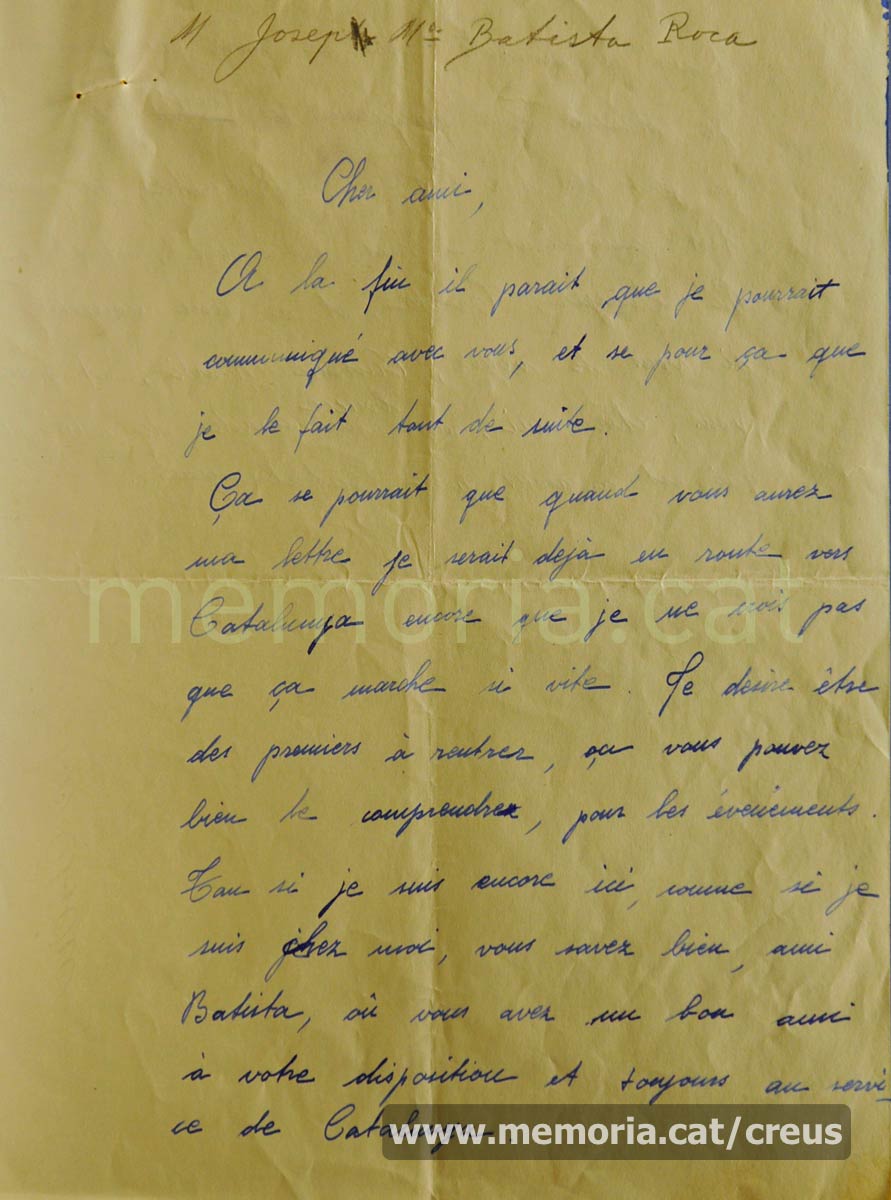 M Joseph Mª Batista Roca
Cher ami,
A la fin il parait que je pourrait
communiqué avec vous, et se pour ça que
je le fait tout de suite.
Ça se pourrait que quand vous aurez
ma lettre je serait dejà en route vers
Catalunya encore que je ne crois pas
que ça marche si vite. Je desire être
des premiers à rentrer, ça vous pouvez
bien le comprendre, pour les événements.
Tan si je suis encore ici, comme si je
suis chez moi, vous savez bien, ami
Batista, où vous avez un bon ami
à votre disposition et toujours au servi-
ce de Catalunya.
memoria.cat
www.memoria.cat/creus